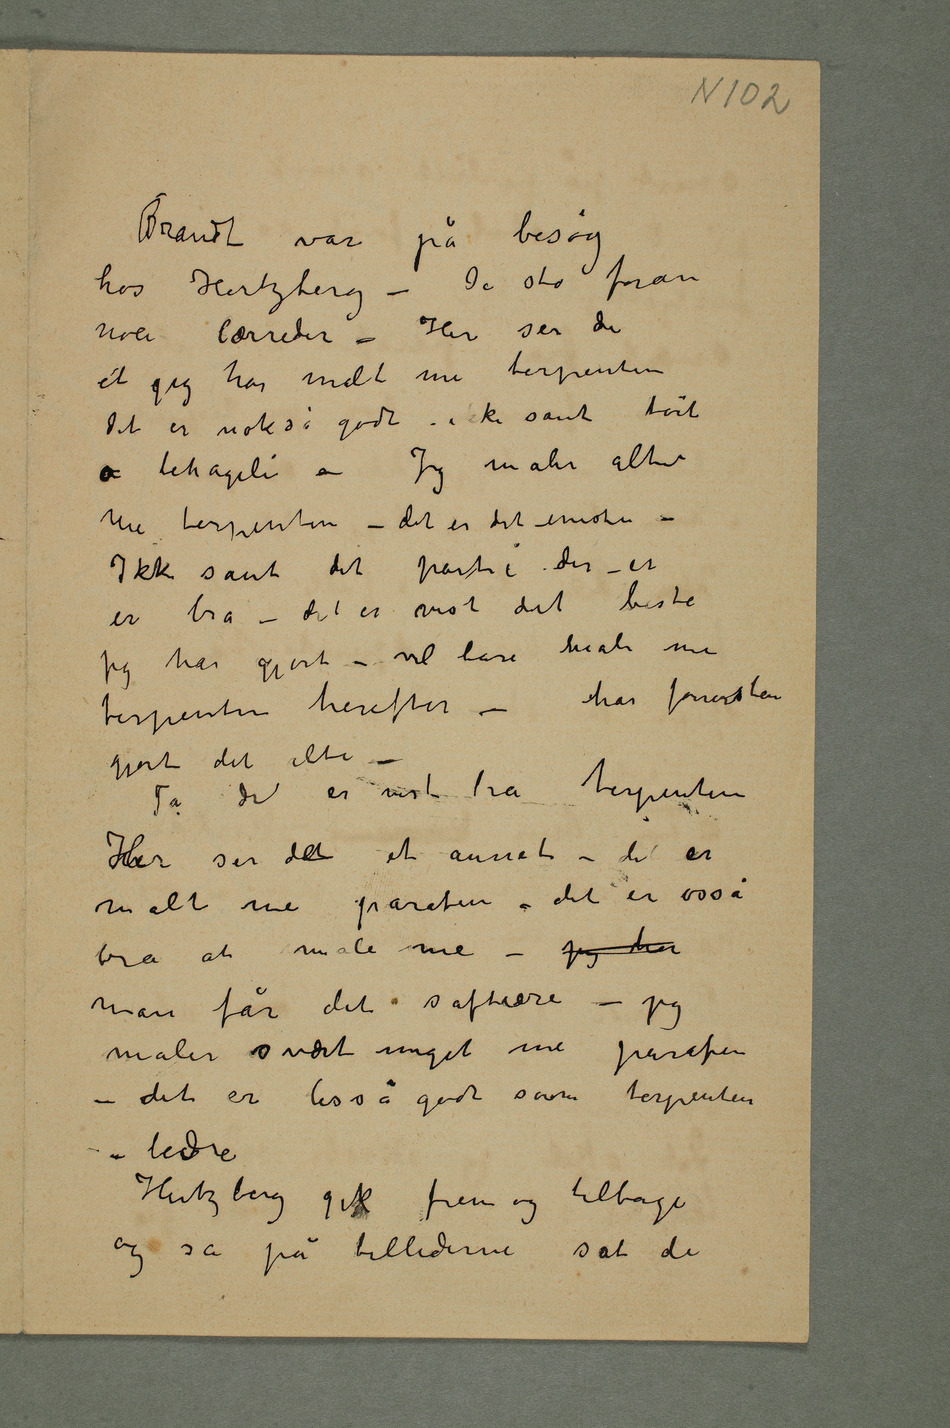 N 102
Brandt var på besøg
hos Hertzberg – De sto foran
noen lærreder – Her ser de
et jeg har malt me terpentin
det er nokså godt – ikke sant tørt
o behageli – Jeg maler altid
me terpentin – det er det eneste –
Ikke sant det parti der – er
er bra – det er vist det beste
jeg har gjort – vil bare male me
terpentin herefter – har forresten
gjort det alti –
Ja det er vist bra terpentin
Her ser de et annet – det er
malt me parafin – det er osså
bra at male me – jeg har
man får det saftiære – jeg
maler svært meget me parafin
– det er lisså godt som terpentin
– bedre
Hertzberg gik frem og tilbage
og så på billederne sat de